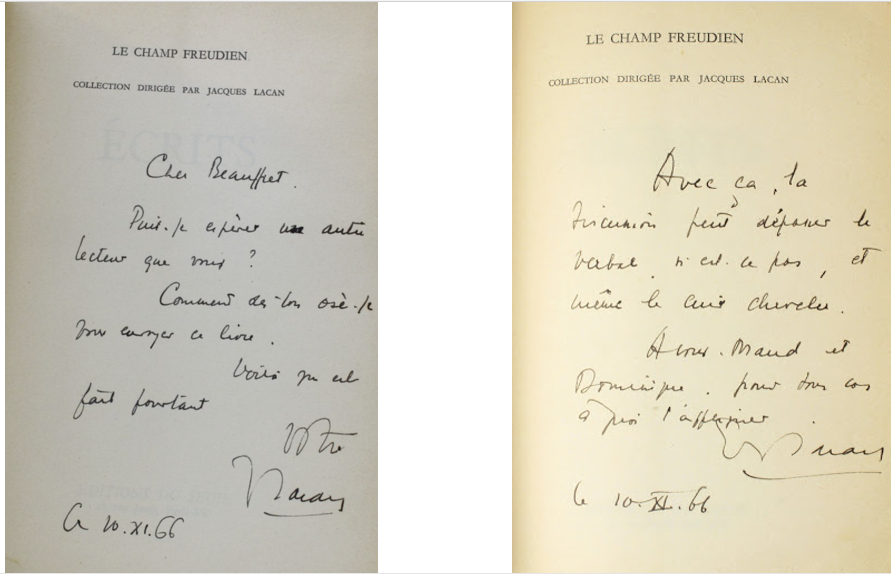 LE CHAMP FREUDIEN
COLLECTION DIRIGÉE PAR JACQUES LACAN
ÉCRITS
Cher Beauffret.
Puis-je espérer un autre
lecteur que vous ?
Comment dès lors osé-je
vous envoyer ce livre.
Voilà qui est
fait pourtant
Votre
Lacan
Ce 10.XI.66
LE CHAMP FREUDIEN
COLLECTION DIRIGÉE PAR JACQUES LACAN
Avec ça, la
discussion peut dépasser le
verbal, n'est-ce pas, et
même le cuir chevelu.
A vous. Maud et
Dominique. pour tous cas
à quoi l'appliquer.
Lacan
le 10.XI.66